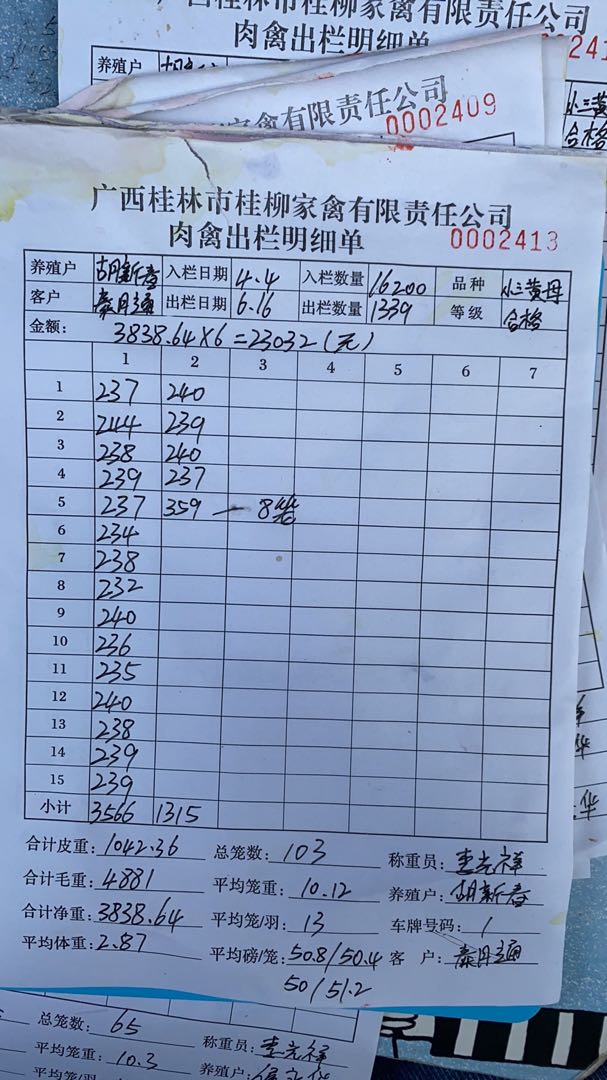 广西桂林市桂柳家禽有限责任公司
肉禽出栏明细单 000241
养殖户
小三黄
合格
家禽有限责任公司
0002409
广西桂林市桂柳家禽有限责任公司
肉禽出栏明细单 0002413
养殖户 胡新春 入栏日期 4.4 入栏数量 16200 品种 小三黄母
客户 出栏日期 6.16 出栏数量 1339 等级 合格
金额: 3838.64×6=23032(元)
1 2 3 4 5 6 7
1 237 240
2 244 239
3 238 240
4 239 237
5 237 359 — 8笼
6 234
7 238
8 232
9 240
10 236
11 235
12 240
13 238
14 239
15 239
小计 3566 1315
合计皮重: 1042.36 总笼数: 103 称重员:
合计毛重: 4881 平均笼重: 10.12 养殖户: 胡新春
合计净重: 3838.64 平均笼/羽: 13 车牌号码: /
平均体重: 2.87 平均磅/笼: 50.8/50.4 客 户:
50/51.2
总笼数: 65 称重员:
平均笼重: 10.3 养殖户: